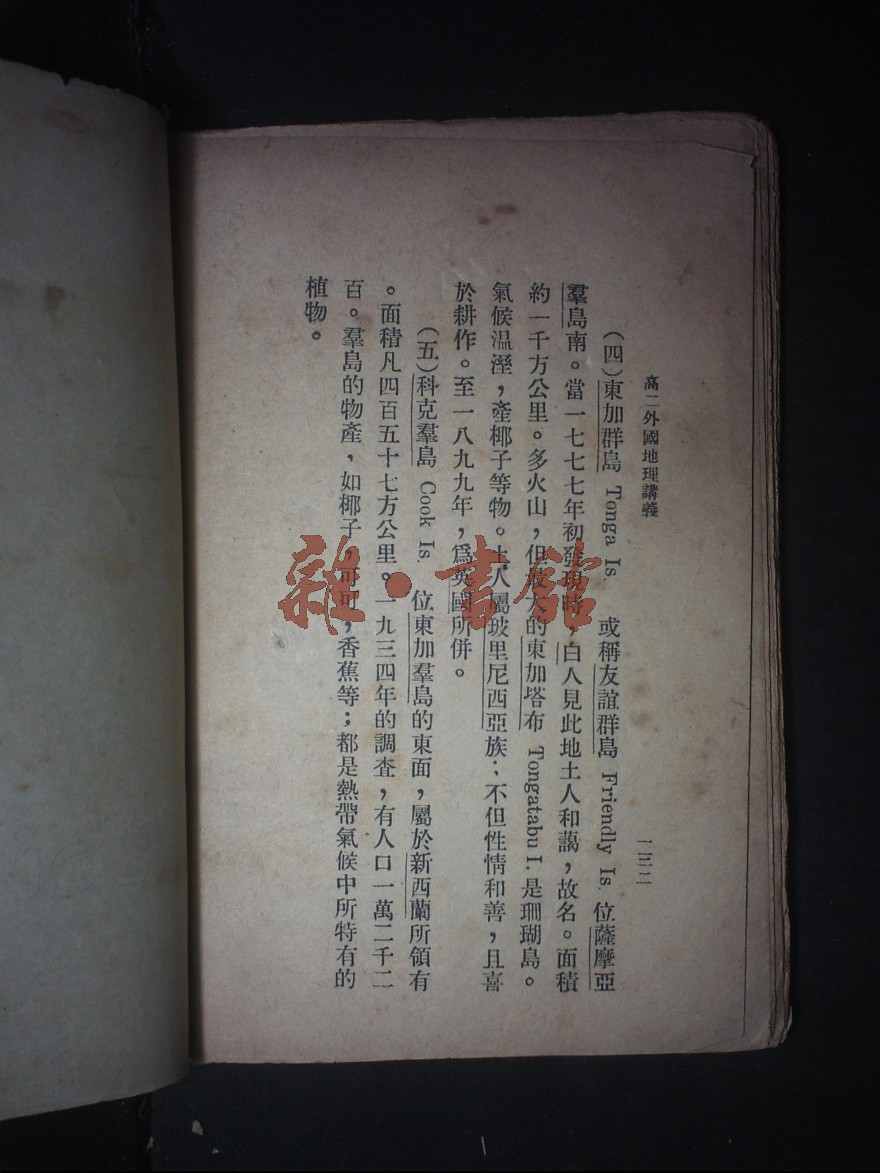 高二外國地理講義
一三二
(四)東加群島 Tonga Is. 或稱友誼群島 Friendly Is. 位薩摩亞
羣島南。當一七七七年初發現時，白人見此地土人和藹，故名。面積
約一千方公里。多火山，但最大的東加塔布 Tongatabu I. 是珊瑚島。
氣候温溼，產椰子等物。土人屬玻里尼西亞族：不但性情和善，且喜
於耕作。至一八九九年，爲英國所併。
(五)科克羣島 Cook Is. 位東加羣島的東面，屬於新西蘭所領有
。面積凡四百五十七方公里。一九三四年的調查，有人口一萬二千二
百。羣島的物產，如椰子，可可，香蕉等；都是熱帶氣候中所特有的
植物。
雜·書館